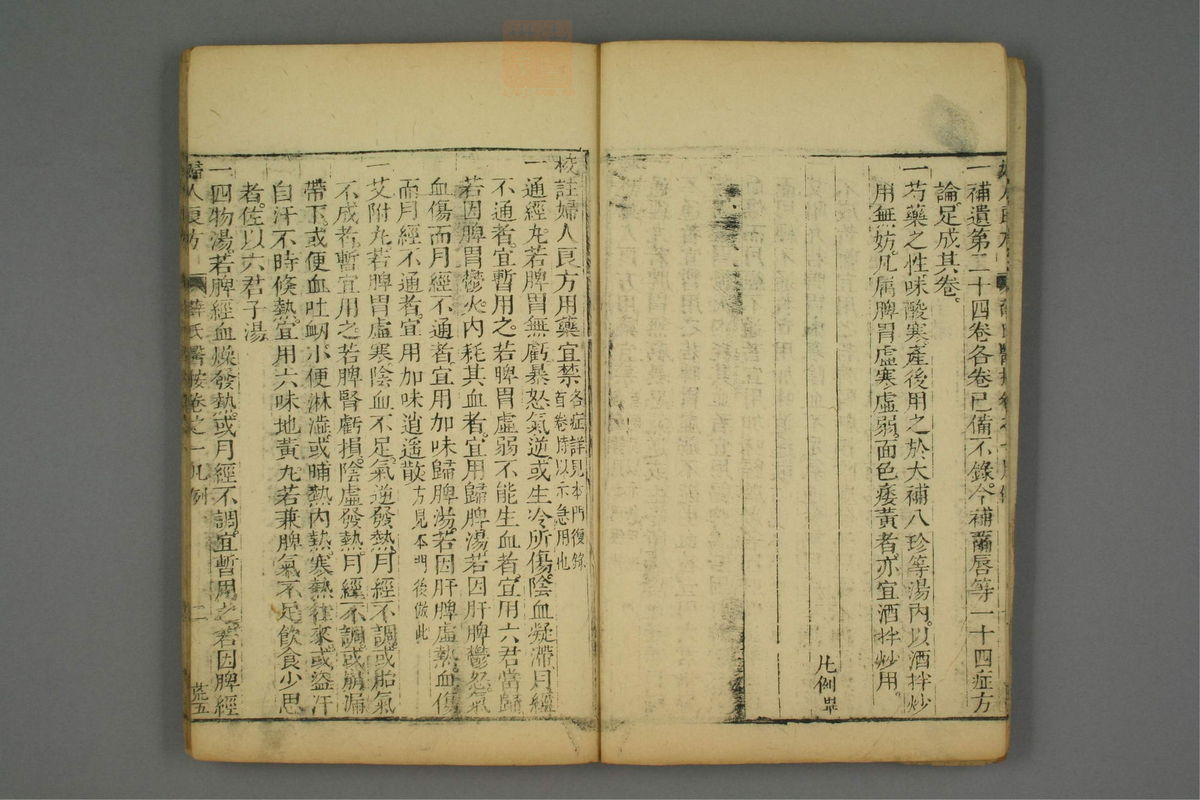 一補遺第二十四卷各卷已備不錄今補繭唇等一十四症方
論足成其卷。
一芍藥之性味酸寒產後用之於大補八珍等湯內以酒拌炒
用無妨凡屬脾胃虛寒虛弱面色痿黃者亦宜酒拌炒用。
凡例畢
校註婦人良方用藥宜禁各症詳見本門復錄
首卷庶以示急用也
一通經丸若脾胃無虧暴怒氣逆或生冷所傷陰血凝滯月經
不通者宜暫用之若脾胃虛弱不能生血者宜用六君當歸
若因脾胃鬱火內耗其血者宜用歸脾湯若因肝脾鬱忿氣
血傷而月經不通者宜用加味歸脾湯若因肝脾虛熱血傷
而月經不通者宜用加味逍遥散方見本門後倣此
一艾附丸若脾胃虛寒陰血不足氣逆發熱月經不調或胎氣
不成者暫宜用之若脾腎虧損陰虛發熱月經不調或崩漏
帶下或便血吐衂小便淋澁或晡熱內熱寒熱往來或盜汗
自汗不時倐熱宜用六味地黃丸若兼脾氣不足飲食少思
者佐以六君子湯
一四物湯若脾經血燥發熱或月經不調宜暫用之若因脾經
婦人良方 薛氏醫按卷之一凡例 二 荒五